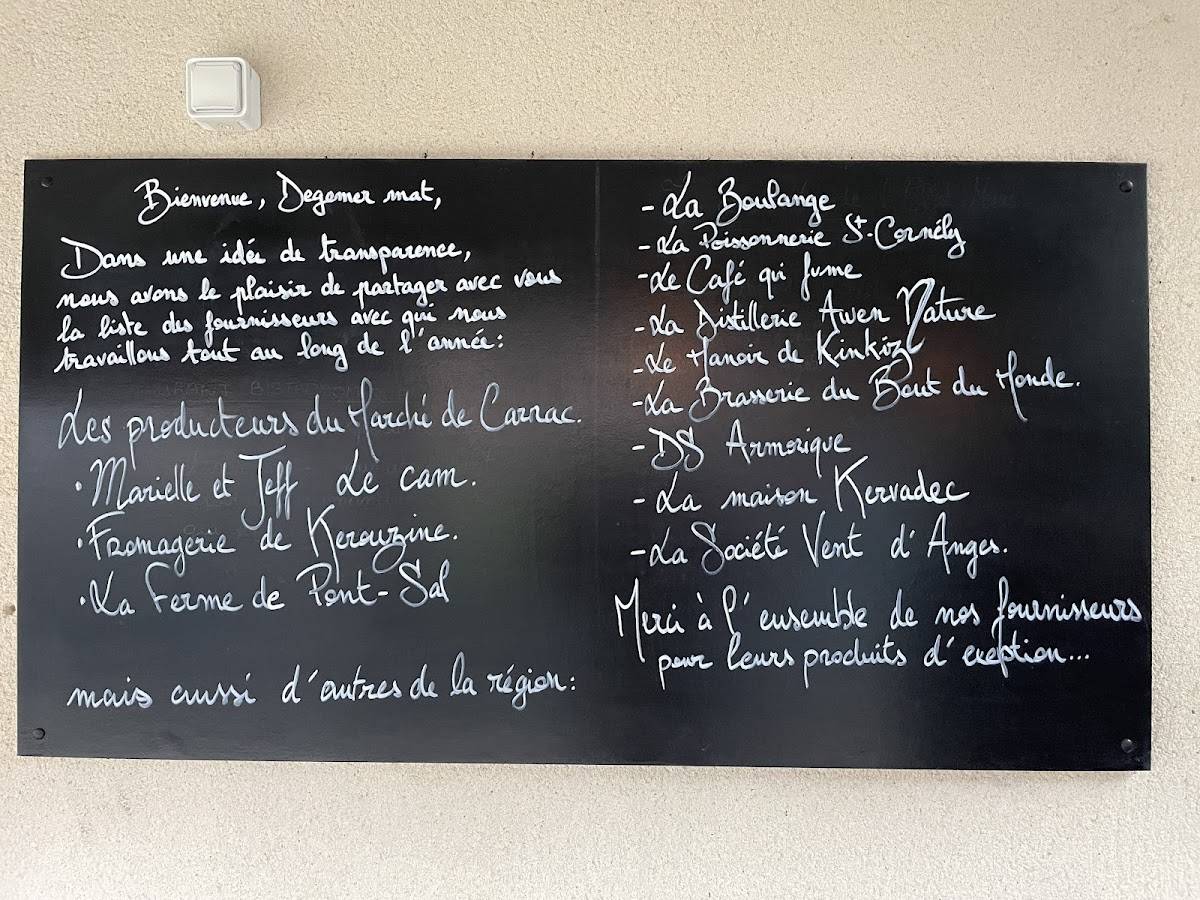 Bienvenue, Degemer mat,
Dans une idée de transparence,
nous avons le plaisir de partager avec vous
la liste des fournisseurs avec qui nous
travaillons tout au long de l'année:
Les producteurs du Marché de Carnac.
• Marielle et Jeff Le cam.
• Fromagerie de Kerouzine.
• La Ferme de Pont-Sal
mais aussi d'autres de la région:
- La Boulange
- La Poissonnerie St-Cornély
- Le Café qui fume
- La Distillerie Awen Nature
- Le Manoir de Kinkiz
- La Brasserie du Bout du Monde.
- DS Armorique
- La maison Kervadec
- La Société Vent d'Anges.
Merci à l'ensemble de nos fournisseurs
pour leurs produits d'exeption...